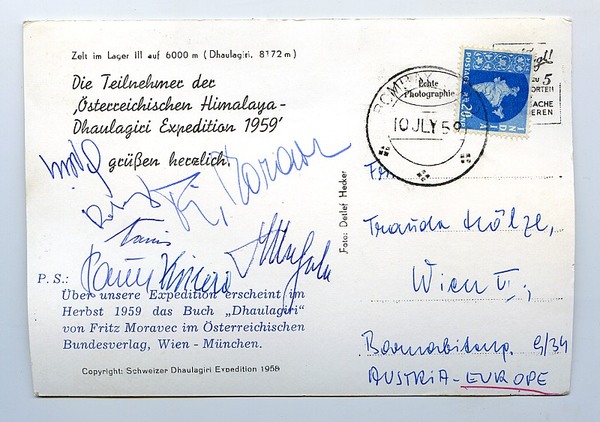 Zelt im Lager III auf 6000 m (Dhaulagiri, 8172 m)
Die Teilnehmer der
‚Österreichischen Himalaya-
Dhaulagiri Expedition 1959’
grüßen herzlich.
Fr. Moravec
P. S.:
Über unsere Expedition erscheint im
Herbst 1959 das Buch „Dhaulagiri"
von Fritz Moravec im Österreichischen
Bundesverlag, Wien - München.
Copyright: Schweizer Dhaulagiri Expedition 1958
Foto: Detlef Hecker
Echte
Photographie
BOMBAY
10 JLY 59
POSTAGE
INDIA
20
5
Trauda Hölze,
Wien VI,
Barnabiteng. 9/34
AUSTRIA-EUROPE